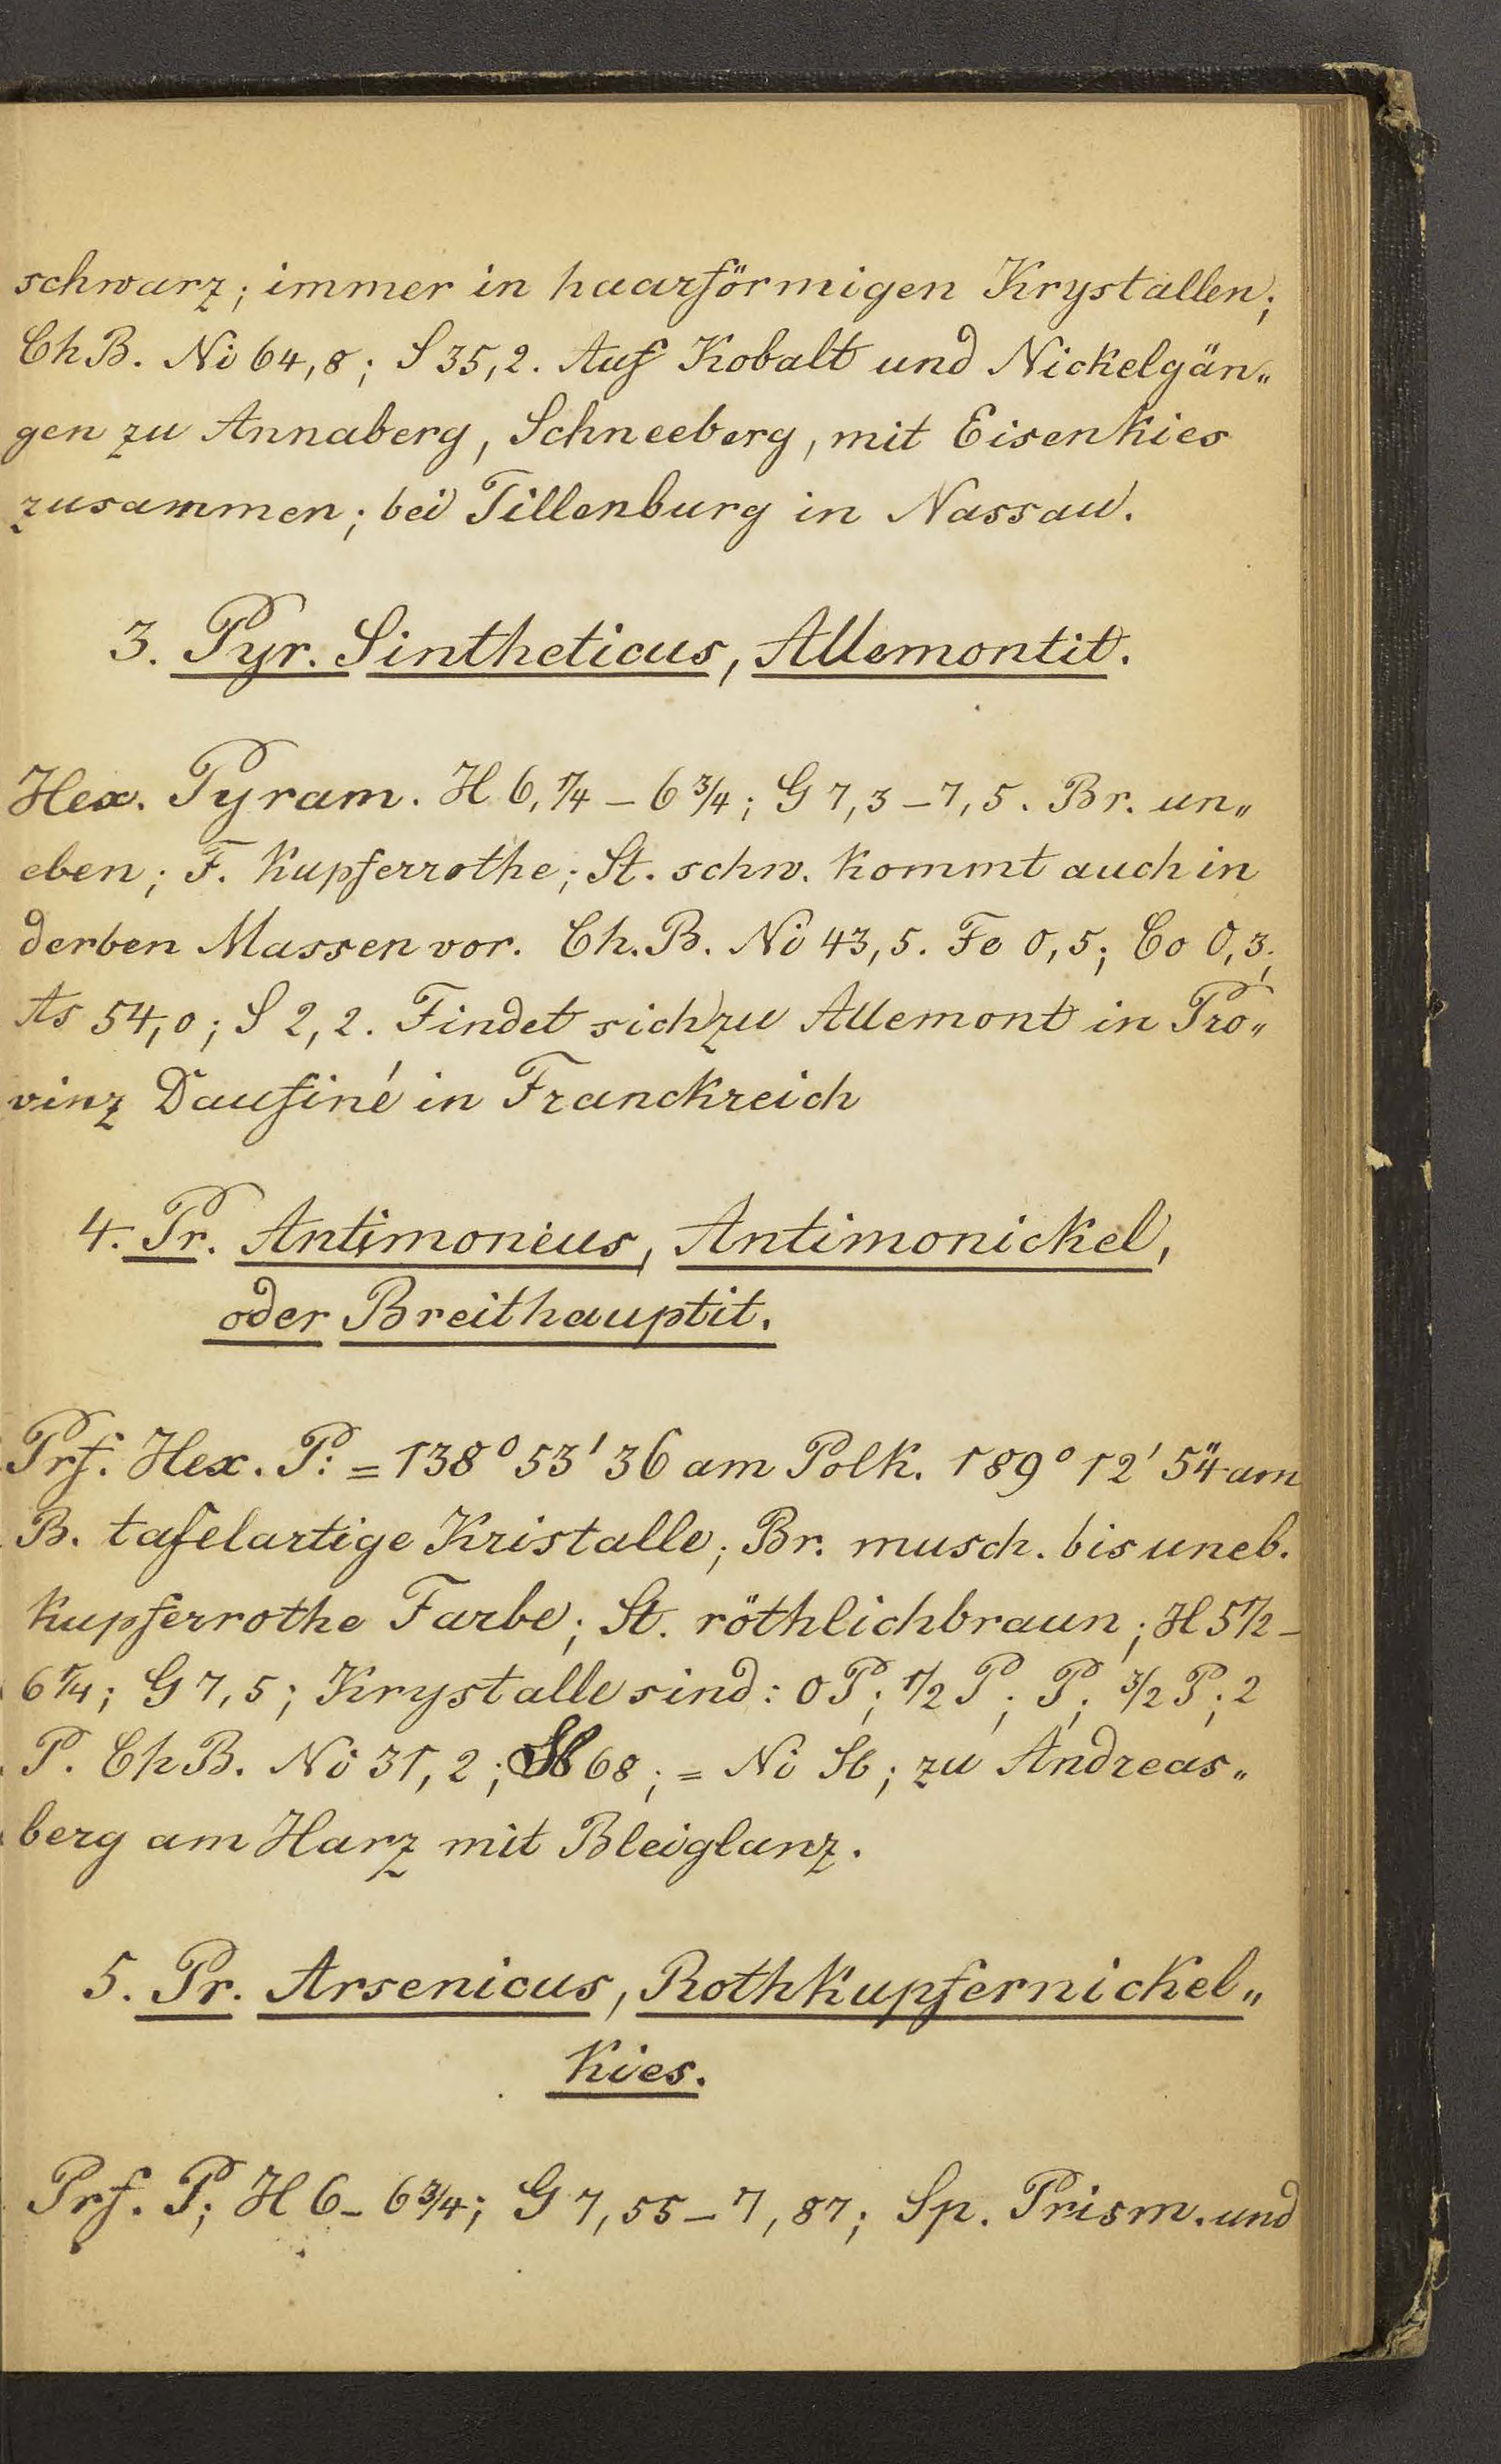 schwarz; immer in haarförmigen Krystallen;
ChB. Ni 64,8; S 35,2. Auf Kobalt und Nickelgän„
gen zu Annaberg, Schneeberg, mit Eisenkies
zusammen; bei Tillenburg in Nassau.
3. Pyr. Sintheticus, Allemontit.
Hex. Pyram. H 6,1/4 – 6 3/4; G 7,3 – 7,5. Br. un„
eben; F. Kupferrothe; St. schw. kommt auch in
derben Massen vor. Ch.B. Ni 43,5. Fe 0,5; Co 0,3;
As 54,0; S 2,2. Findet sich zu Allemont in Pro„
vinz Daufiné in Franckreich
4. Pr. Antimonius, Antimonickel,
oder Breithauptit.
Prf. Hex. P: = 138° 53' 36 am Polk. 189° 12' 54" am
B. tafelartige Kristalle; Br. musch. bis uneb.
Kupferrothe Farbe; St. röthlichbraun; H 5 1/2 –
6 1/4; G 7,5; Krystalle sind: 0P; 1/2 P; P; 3/2 P; 2
P. ChB. Ni 31,2; Sb 68; = Ni Sb; zu Andreas„
berg am Harz mit Bleiglanz.
5. Pr. Arsenicus, Rothkupfernickel„
Kies.
Prf. P; H 6 – 6 3/4; G 7,55 – 7,87; Sp. Prism. und